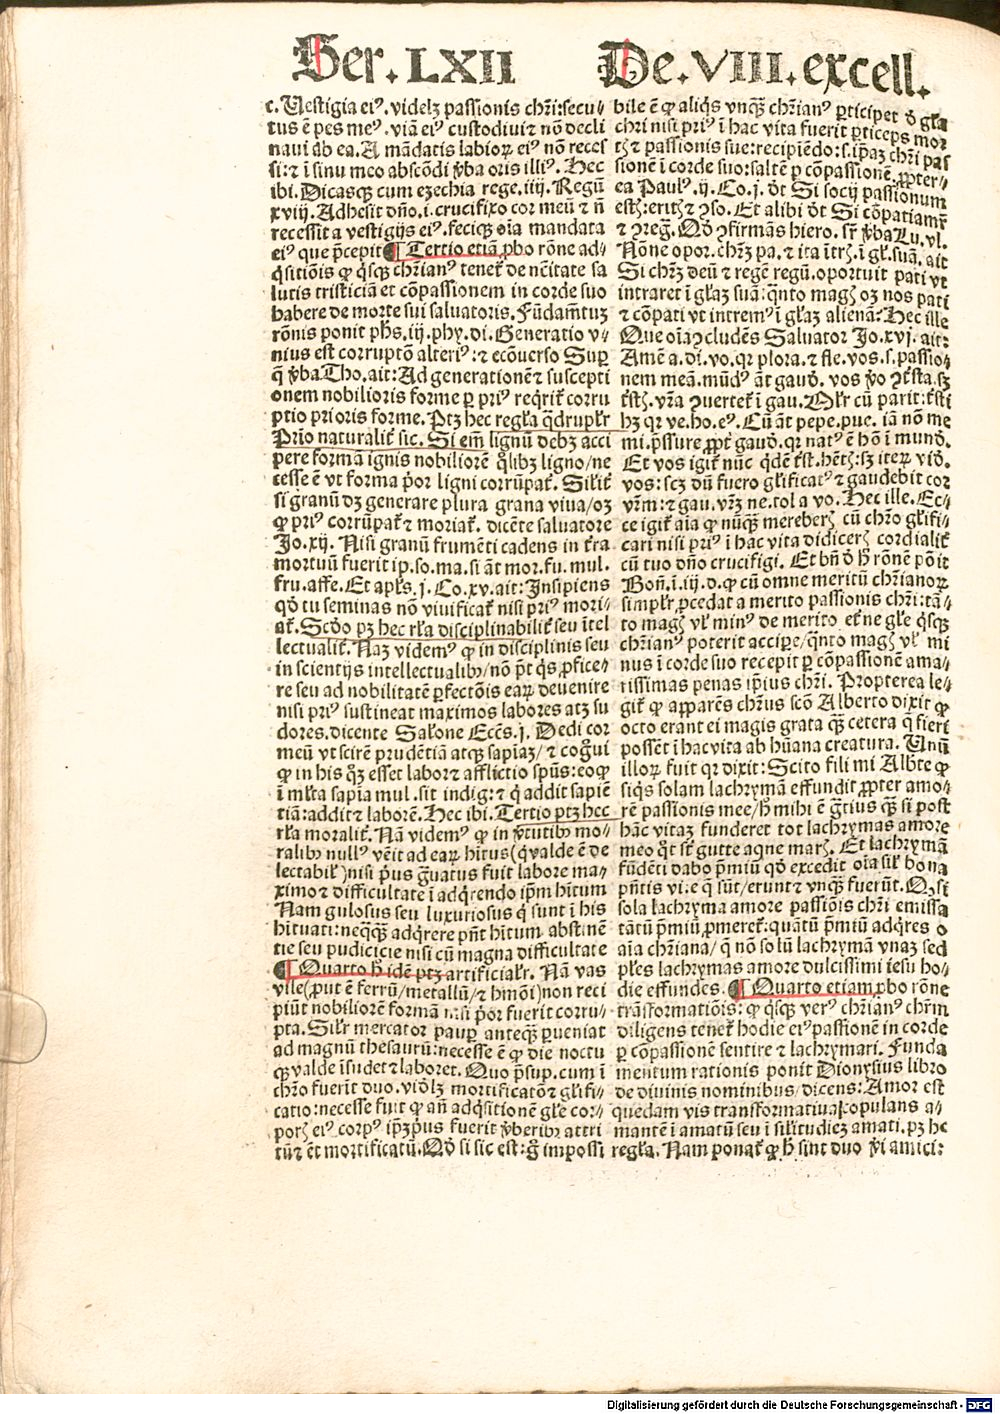 Ser. LXII De. VIII. excell.
c. Uestigia eiꝰ. videlꝫ passionis chr̄i: secu-
tus ē pes meꝰ. viā eiꝰ custodiui ⁊ nō decli
naui ab ea. A mādatis labioꝝ eiꝰ nō recef
si: ⁊ ī sinu meo abscōdi v̄ba oris illiꝰ. Hec
ibi. Dicasqꝫ cum ezechia rege. iiij. Regū
xviij. Adhesit dn̄o. i. crucifixo cor meū ⁊ n̄
recessit a vestigijs eiꝰ. fecitqꝫ oīa mandata
eiꝰ que p̄cepit ¶ Tertio etiā ꝓbo rōne ad-
q̇sitiōis ꝙ q̇sqꝫ chr̄ianꝰ tenet̉ de nc̄itate sa
lutis tristiciā et cōpassionem in corde suo
habere de morte sui saluatoris. Fūdam̄tuꝫ
rōnis ponit ph̄s. iij. phy. di. Generatio v-
nius est corruptō alteriꝰ: ⁊ ecōuerso Suꝑ
q̄ v̄ba Tho. ait: Ad generationē ⁊ suscepti
onem nobilioris forme ꝑ priꝰ req̇rit̉ corru
ptio prioris forme. Ptꝫ hec reg̉la q̄druplr̉
Prīo naturalit̉ sic. Si em̄ lignū debꝫ acci
pere formā ignis nobiliorē q̉libꝫ ligno / ne
cesse ē vt forma p̄or ligni corrūpat̉. Silit̉
si granū dꝫ generare plura grana viua / oꝫ
ꝙ priꝰ corrūpat̉ ⁊ moriat̉. dicēte saluatore
Jo. xij. Nisi granū frumēti cadens in t̉ra
mortuū fuerit ip. so. ma. si āt mor. fu. mul.
fru. affe. Et apl̉s. j. Co. xv. ait: Insipiens
qd̉ tu seminas nō viuificat̉ nisi priꝰ mori-
at̉. Scd̉o pꝫ hec rl̉a disciplinabilit̉ seu ītel
lectualit̉. Naꝫ videmꝰ ꝙ in disciplinis seu
in scientijs intellectualibꝰ / nō pt̄ q̇s ꝓfice-
re seu ad nobilitatē ꝑfectōis eaꝝ deuenire
nisi priꝰ sustineat maximos labores atqꝫ su
dores. dicente Salōne Ecēs. j. Dedi cor
meū vt scirē prudētiā atqꝫ sapīaꝫ / ⁊ cog̉ui
ꝙ in his q̉ꝫ esset labor ⁊ afflictio sp̄us: eo ꝙ
ī ml̉ta sapīa mul. sit indig: ⁊ q̇ addit sapiē
tiā: addit ⁊ laborē. Hec ibi. Tertio ptꝫ hec
rl̉a moralit̉. Nā videmꝰ ꝙ in v̄tutibꝰ mo-
ralibꝰ nullꝰ vēit ad eaꝝ hītus (q̇ valde ē de
lectabil̉) nisi p̄us g̉uatus fuit labore ma-
ximo ⁊ difficultate ī adq̇rendo ip̄m hītum
Nam gulosus seu luxuriosus q̇ sunt ī his
hītuati: neqꝫ adq̇rere pn̄t hītum abstinē
tie seu pudicicie nisi cū magna difficultate
¶ Quarto h̉ idē ptꝫ artificialr̉. Nā vas
vile (ꝓut ē ferrū / metallū / ⁊ hmōi) non reci
piūt nobiliorē formā nisi p̄or fuerit corru-
pta. Silr̉ mercator pauꝑ anteqꝫ ꝑueniat
ad magnū thesaurū: necesse ē ꝙ die noctu
qꝫ valde īsudet ⁊ laboret. Quo p̄sup. cum ī
chr̄o fuerīt duo. vidl̉ꝫ mortificatō ⁊ gl̉ifi-
catio: necesse fuit ꝙ an̄ adq̇sitionē gl̉e cor-
porꝭ eiꝰ corpꝰ ip̄ꝫ p̄us fuerit v̄beribꝰ attri
tū ⁊ ēt mortificatū. Qd̉ si sic est: g̉ impossi
bile ē ꝙ aliq̇s vnqꝫ chr̄ianꝰ ꝑticipet d̉ gl̉a
chr̄i nisi priꝰ ī hac vita fuerit ꝑticeps mor
tꝭ ⁊ passionis sue: recipiēdo: s. ip̄aꝫ chr̄i pas
sionē ī corde suo: saltē ꝑ cōpassionē ꝓpter-
ea Paulꝰ. ij. Co. j. d̉t Si socij passionum
estꝭ: eritꝭ ⁊ ꝯso. Et alibi d̉t Si cōpatiamꝰ
⁊ ꝯreg̉. Qd̉ ꝯfirmās hiero. sr̉ v̄ba Lu. vl.
Nōne opor. chr̄ꝫ pa. ⁊ ita ītrꝭ. ī gl̉. suā. ait
Si chr̄ꝫ deū ⁊ regē regū. oportuit pati vt
intraret ī gl̉aꝫ suā: q̄nto magꝭ oꝫ nos pati
⁊ cōpati vt intremꝰ ī gl̉aꝫ alienā? Hec ille
Que oīa ꝯcludēs Saluator Jo. xvj. ait:
Amē a. di. vo. qr plora. ⁊ fle. vos. s. passio-
nem meā. mūdꝰ āt gaud̉. vos v̉o ꝯt̉sta. sꝫ
t̉stꝭ. vr̄a ꝯuertet̉ ī gau. Ml̉r cū parit: t̉sti
hꝫ qr ve. ho. eꝰ. Cū āt pepe. pue. iā nō me
mi. p̄ssure ꝓpt̉ gaud̉. qr natꝰ ē hō ī mund̉.
Et vos igit̉ nūc q̇dē t̉st. hētꝭ: sꝫ iteꝝ vid̉.
vos: scꝫ dū fuero gl̉ificatꝰ ⁊ gaudebit cor
vr̄m: ⁊ gau. vr̄ꝫ ne. tol a vo. Hec ille. Ec-
ce igit̉ aīa ꝙ nūqꝫ mereberꝭ cū chr̄o gl̉ifi-
cari nisi priꝰ ī hac vita didicerꝭ cordialit̉
cū tuo dn̄o crucifigi. Et bn̄ d̉ h̉ rōnē pōit
Bon̄. ī. iij. d. ꝙ cū omne meritū chr̄ianoꝝ
simplr̉ ꝓcedat a merito passionis chr̄i: tā-
to magꝭ vl̉ minꝰ de merito et̉ne gl̉e q̇sqꝫ
chr̄ianꝰ poterit accipe / q̄nto magꝭ vl̉ mi
nus ī corde suo recepit ꝑ cōpassionē ama-
rissimas penas ip̄ius chr̄i. Propterea le-
git̉ ꝙ apparēs chr̄us scō Alberto dixit ꝙ
octo erant ei magis grata qꝫ cetera q̄ fieri
possēt ī hac vita ab hūana creatura. Unū
illoꝝ fuit qr dixit: Scito fili mi Alb̉te ꝙ
siq̇s solam lachrymā effundit ꝓpter amo-
rē passionis mee / h̉ mihi ē g̉tius qꝫ si post
hāc vitaꝫ funderet tot lachrymas amore
meo q̉t st̉ gutte aque marꝭ. Et lachrymā
fūdēti dabo p̄miū qd̉ excedit oīa sil̉ bona
pn̄tis vi. e q̄ sūt / erunt ⁊ vnqꝫ fuerūt. Qꝫ si
sola lachryma amore passiōis chr̄i emissa
tātū p̄miū ꝓmeret̉: quātū p̄miū adq̇res o
aīa chr̄iana / q̄ nō solū lachrymā vnaꝫ sed
pl̉es lachrymas amore dulcissimi iesu ho-
die effundes. ¶ Quarto etiam ꝓbo rōne
trāsformatiōis: ꝙ q̇sqꝫ verꝰ chr̄ianꝰ chr̄m
diligens tenet̉ hodie eiꝰ passionē in corde
ꝑ cōpassionē sentire ⁊ lachrymari. Funda
mentum rationis ponit Dionysius libro
de diuinis nominibus / dicens: Amor est
quedam vis transformatiua / copulans a-
mantē ī amatū seu ī sil̉itudīeꝫ amati. pꝫ hec
regl̉a. Nam ponat̉ ꝙ h̉ sint duo v̉i amici:
Digitalisierung gefördert durch die Deutsche Forschungsgemeinschaft - DFG